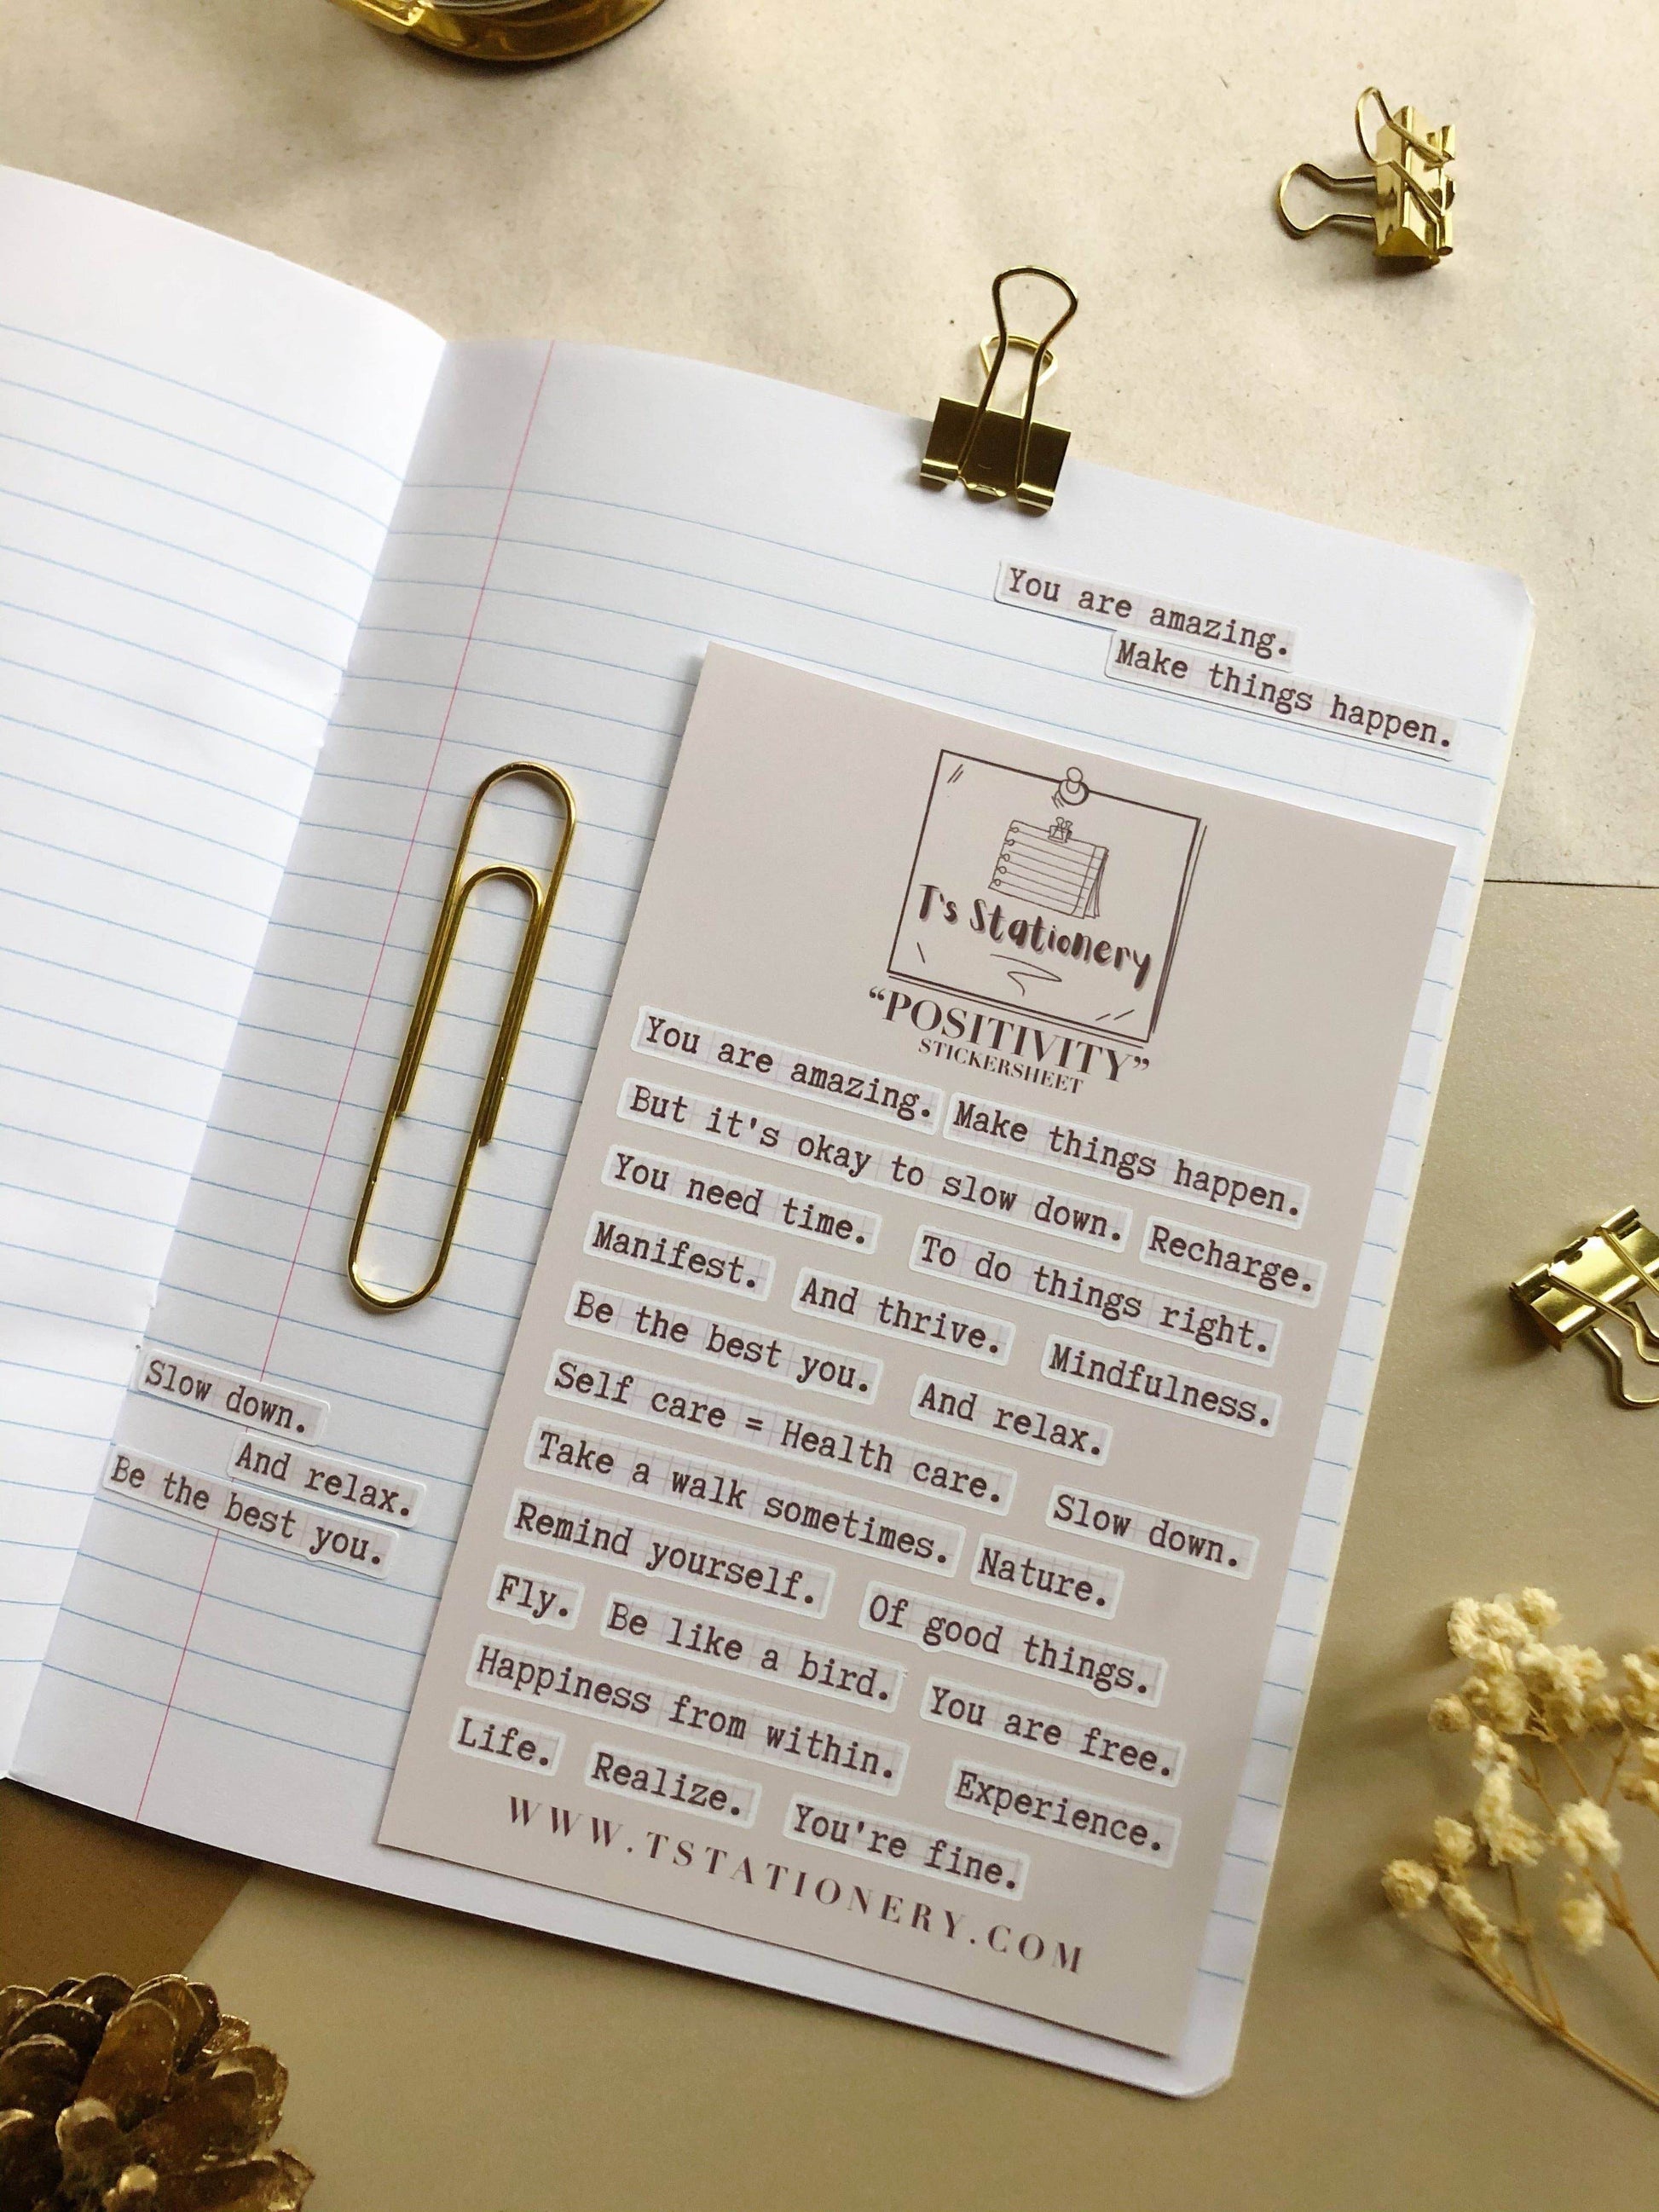 You are amazing.
Make things happen.
T's Stationery
“POSITIVITY”
STICKERSHEET
You are amazing. Make things happen.
But it's okay to slow down. Recharge.
You need time. To do things right.
Manifest. And thrive. Mindfulness.
Be the best you. And relax.
Self care = Health care. Slow down.
Take a walk sometimes. Nature.
Remind yourself. Of good things.
Fly. Be like a bird. You are free.
Happiness from within. Experience.
Life. Realize. You're fine.
WWW.TSTATIONERY.COM
Slow down.
And relax.
Be the best you.